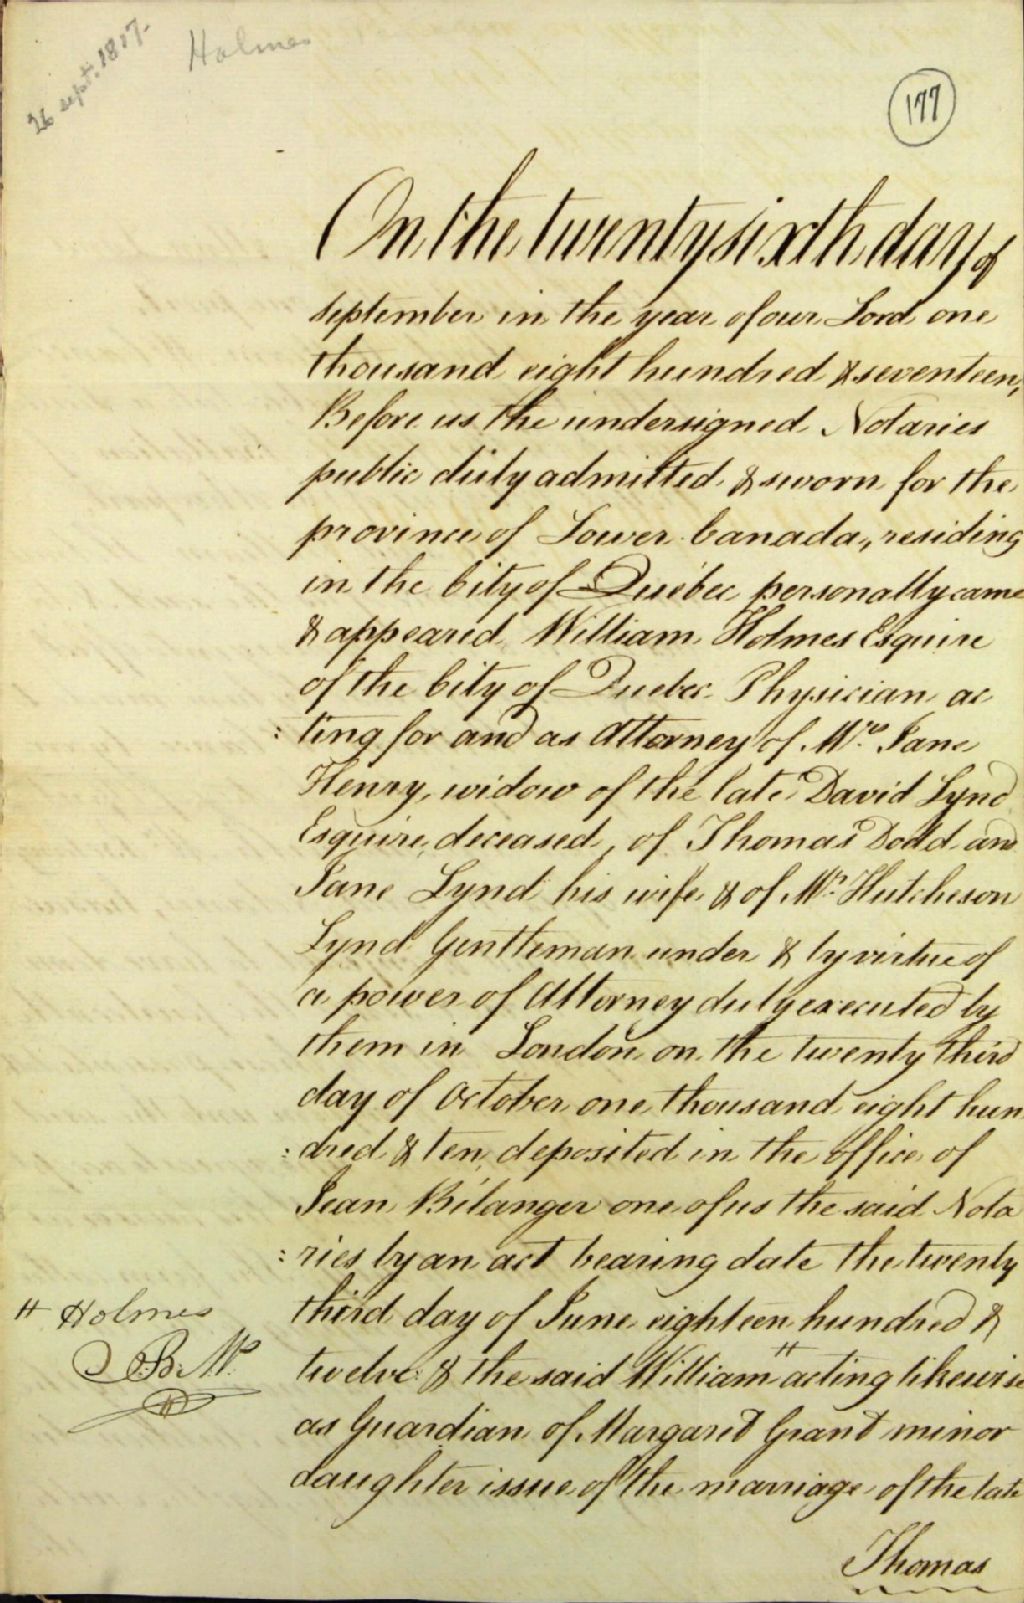 26 sept. 1817.
Holmes
177
On the twenty sixth day of
september in the year of our Lord one
thousand eight hundred & seventeen,
Before us the undersigned Notaries
public duly admitted & sworn for the
province of Lower Canada, residing
in the City of Québec personally came
& appeared William Holmes Esquire
of the City of Quebec Physician ac
:ting for and as Attorney of Mrs. Jane
Henry, widow of the late David Lynd
Esquire, deceased, of Thomas Dodd and
Jane Lynd his wife & of Mr. Hutcheson
Lynd Gentleman under & by virtue of
a power of Attorney duly executed by
them in London on the twenty third
day of October one thousand eight hun
:dred & ten, deposited in the office of
Jean Bélanger one of us the said Nota
:ries by an act bearing date the twenty
third day of June eighteen hundred &
twelve & the said William # acting likewise
as Guardian of Margaret Grant minor
daughter issue of the marriage of the late
Thomas
# Holmes
J.B. W.